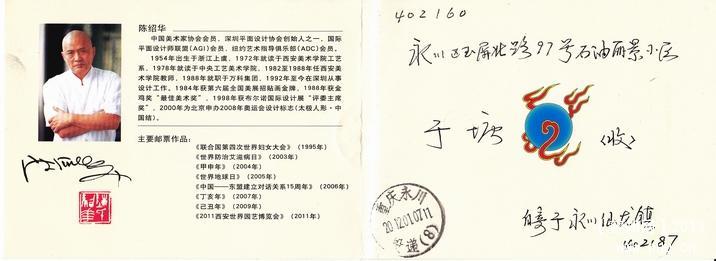 陈绍华
中国美术家协会会员，深圳平面设计协会创始人之一，国际
平面设计师联盟(AGI)会员，纽约艺术指导俱乐部(ADC)会员。
1954年出生于浙江上虞，1972年就读于西安美术学院工艺
系，1978年就读于中央工艺美术学院，1982至1988年任西安美
术学院教师，1988年就职于万科集团，1992年至今在深圳从事
设计工作。1984年获第六届全国美展招贴画金牌，1988年获金
鸡奖“最佳美术奖”，1998年获布尔诺国际设计展“评委主席
奖”，2000年为北京申办2008年奥运会设计标志(太极人形·中
国结)。
主要邮票作品：
《联合国第四次世界妇女大会》（1995年）
《世界防治艾滋病日》（2003年）
《甲申年》（2004年）
《世界地球日》（2005年）
《中国——东盟建立对话关系15周年》（2006年）
《丁亥年》（2007年）
《己丑年》（2009年）
《2011西安世界园艺博览会》（2011年）
402160
永川区玉屏北路97号石油丽景小区
于塘
(收)
重庆永川
2012.01.07.11
(8)
于永川仙龙镇
402187